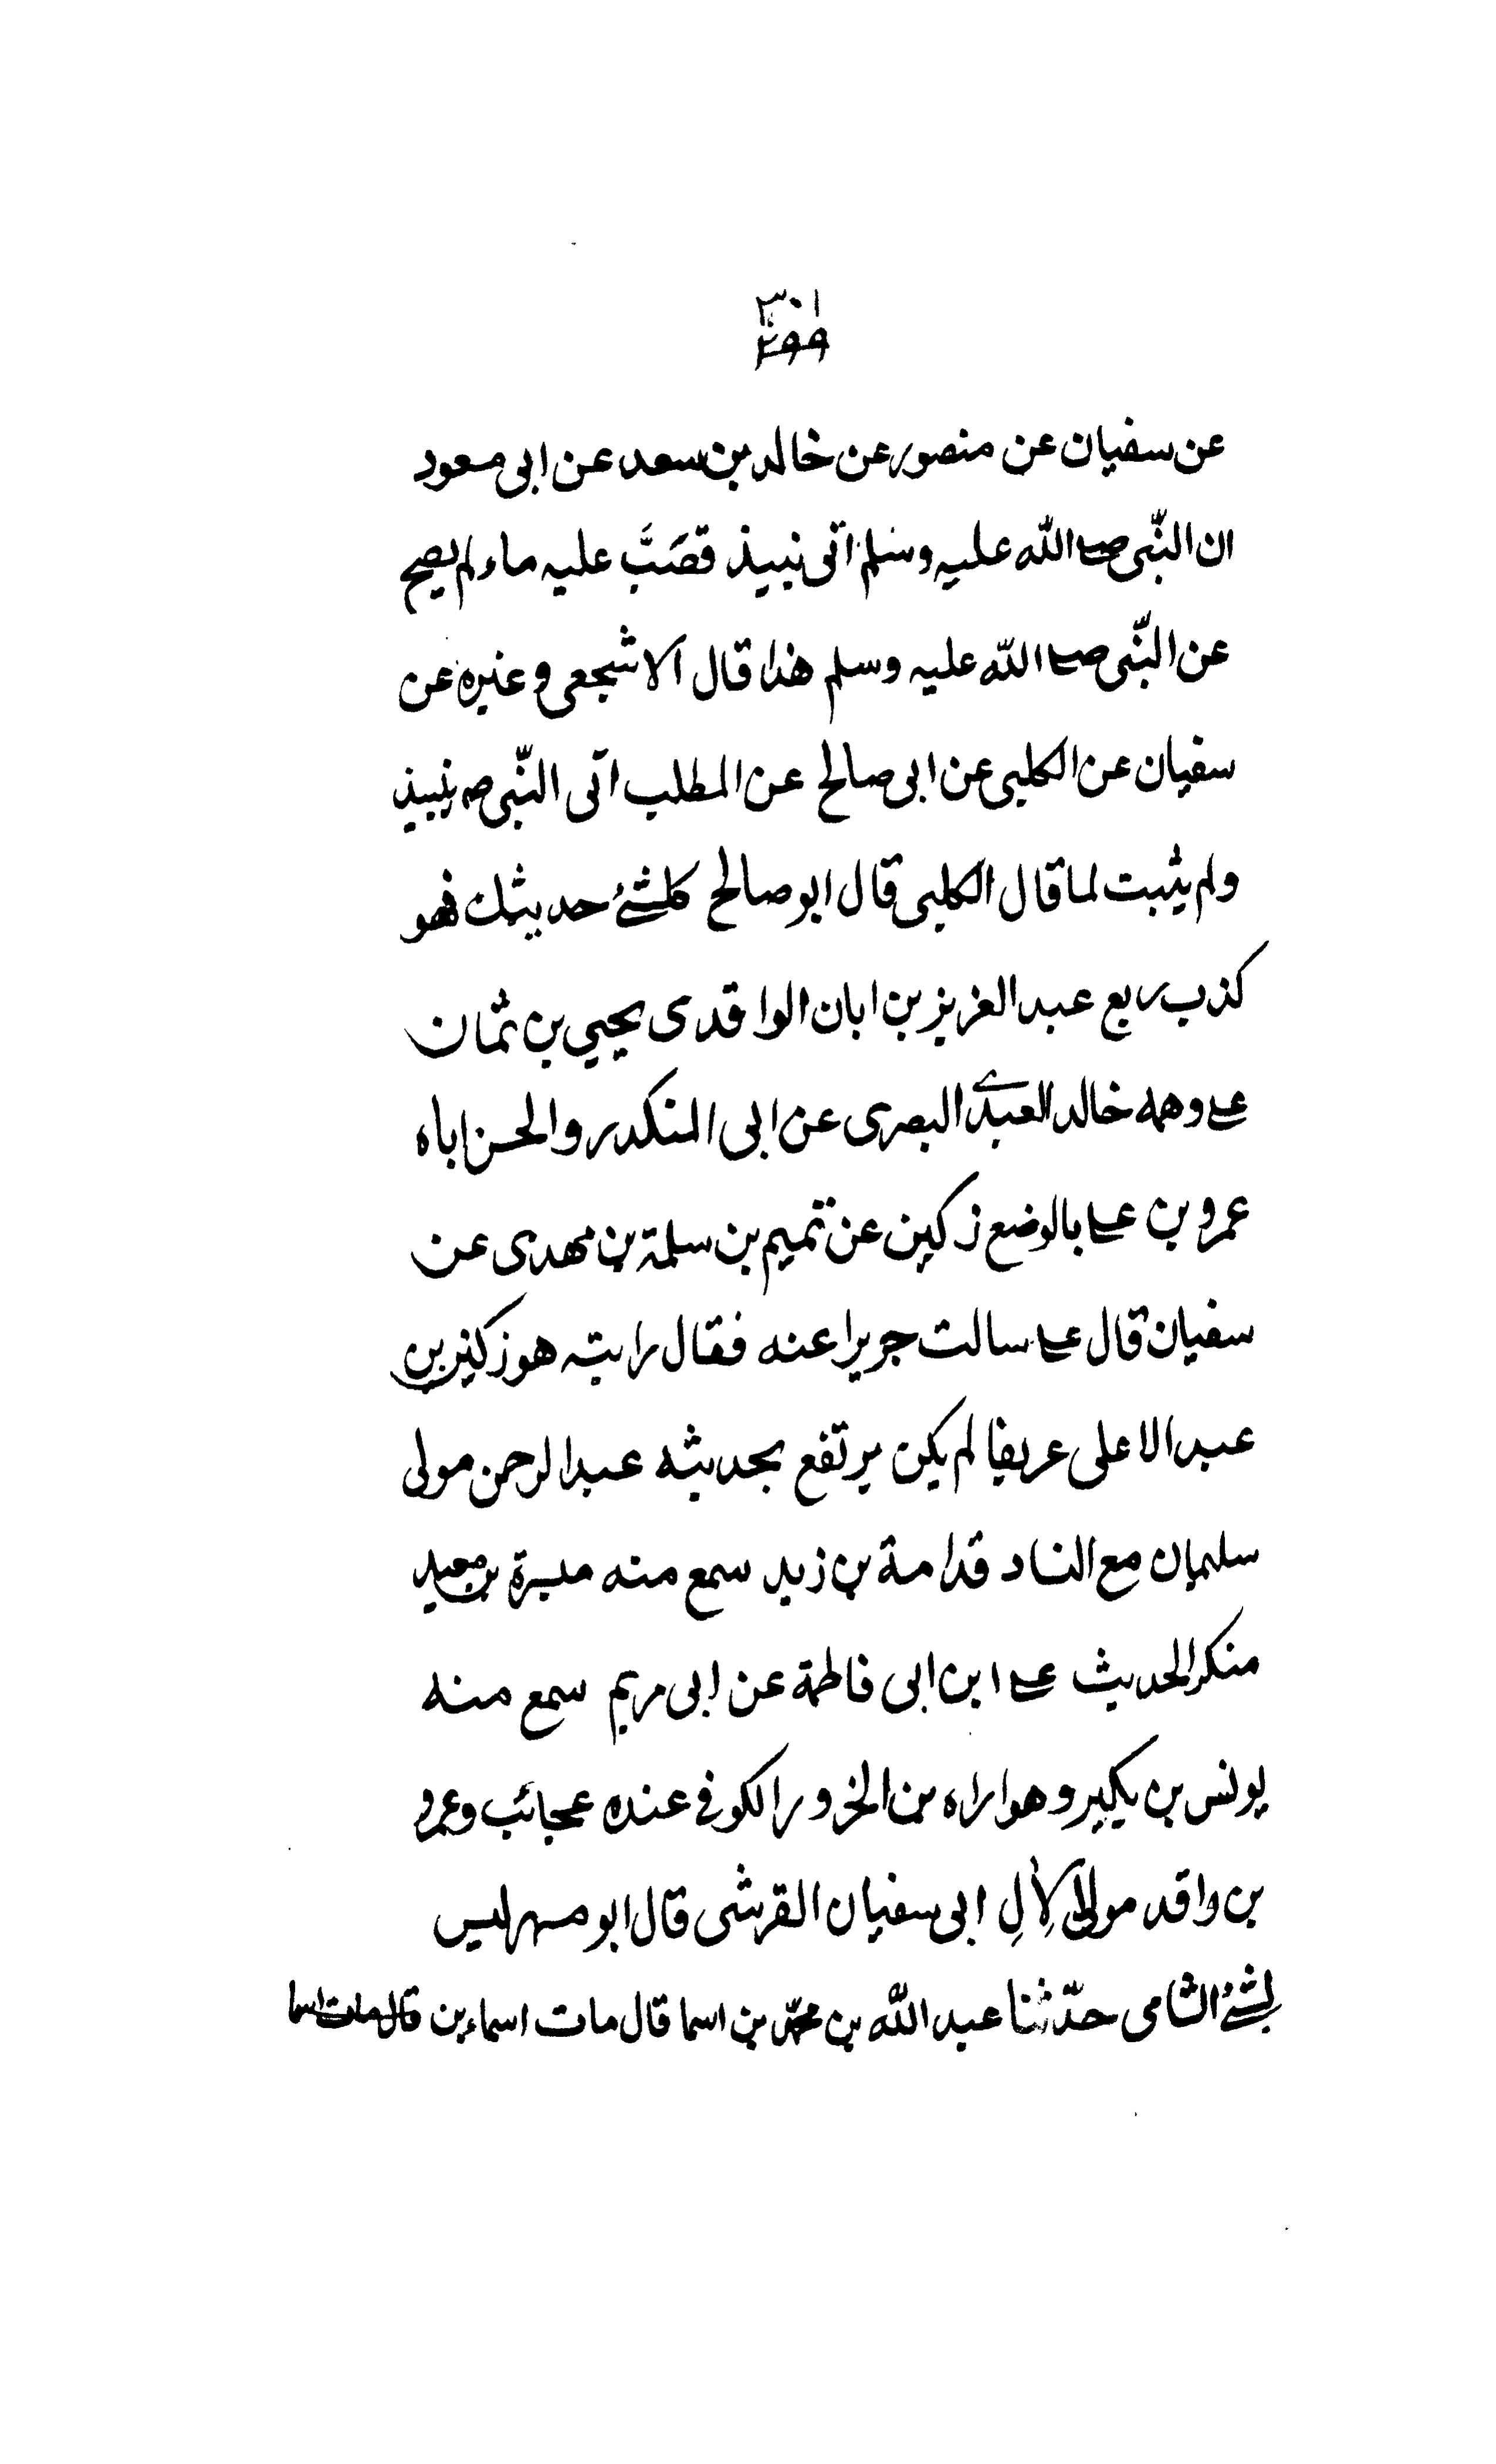 ٣٠١
٢٩٩
عن سفيان عن منصور عن خالد بن سعد عن ابى مسعود
ان النّبى صلى الله عليه وسلم اتى نبيذ قصَبَّ عليه ماء لم يصح
عن النّبى صلى الله عليه وسلم هذا قال الاشجعى وغيره عن
سفيان عن الكلبى عن ابى صالح عن المطلب اتى النّبى صه بنبيذ
ولم يثبت لما قال الكلبى قال ابو صالح كلشئ حديثك فهو
كذب ربع عبد العزيز بن ابان الواقدى يحيي بن ثمان
على وهمه خالد العبدى البصرى عن ابى المنكدر والحسن اباه
عمرو بن على بالوضع زكين عن تميم بن سلمة بن مهدى عن
سفيان قال على سالت جريرا عنه فقال رايته هوزكنيز بن
عبد الاعلى عريفا لم يكن يرتفع بحديثه عبد الرحمن مولى
سليمان مع الناد قدامة بن زيد سمع منه ميسرة بن معبد
منكر الحديث على ابن ابى فاطمة عن ابى مريم سمع منه
يونس بن بكير وهو اراه بن الخرور الكوفى عنده عجائب وعمرو
بن واقد مولى لآلِ ابى سفيان القرشى قال ابو مسهر ليس
بشئ الشامى حدّثنا عبد الله بن محمّد بن اسما قال مات اسماء بن قال مات اسما